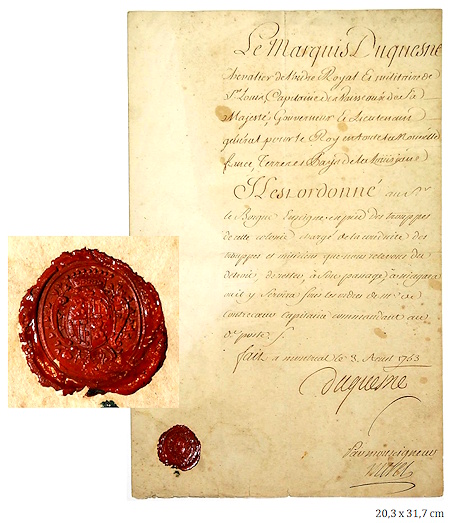 Le Marquis Duquesne
chevalier de l'ordre Royal Et militaire de
St. Louis, Capitaine des Vaisseaux de Sa
Majesté, Gouverneur et Lieutenant
général pour le Roy en toute la Nouvelle
france Terres et Pays de la
Il est ordonné au Sr.
le Borgne Enseigne en pied des trouppes
de cette colonie chargé de la conduite des
trouppes et miliciens que nous relevons du
detroit, de rester, à son passage, à niagara
ou il y Servira sous les ordres de mr. de
Contrecoeur Capitaine commandant au
d. poste /.
fait a montreal le 8 Aout 1753
Duquesne
Par monseigneur
20,3 x 31,7 cm